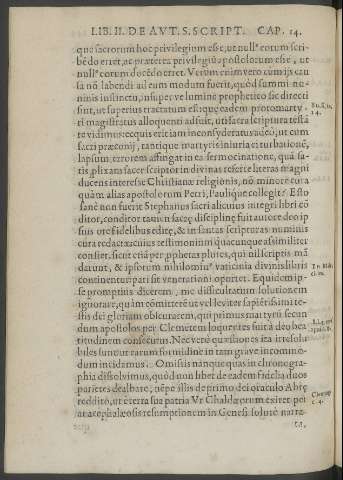 LIB. II. DE AVT. S. SCRIPT. CAP. 14.
que sacrorum hoc privilegium esse, ut null⁹ eorum scri-
bẽdo erret, ac præterea privilegiũ apostolorum esse, ut
null⁹ eorum docẽdo erret. Verum enim vero cùm ijs cau
sa nõ labendi ad eum modum fuerit, quòd summi nu-
minis instinctu, insuper ve lumine prophetico sic directi
sint, ut superius tractatum est: quẽ eadem protomarty-
ri magistratus alloquenti adsuit, uti sacra scriptura testa
te vidimus: ecquis eticiam inconsyderatus adeò, ut cum
sacri præconij, tantique martyris iniuria et turbatione,
lapsum, errorem affingat in ea sermocinatione, quã sa-
tis plixam sacer scriptor in divinas referre literas magni
ducens interesse Christianæ religionis, nõ minore cura
quàm alias apostolorum Petri, Pauliq́ue collegit? Esto
sanè non fuerit Stephanus sacri alicuius integri libri cõ
ditor, conditor tamen sacræ disciplinę fuit autore deo ip
suis ore fidelibus editę, & in sanctas scripturas numinis
cura redactæ: cuius testimonium quacunque assimiliter
constet, sicut etiã per pphetas plures, qui nil scriptis mã
darunt, & ipsorum nihilomin⁹ vaticinia divinis libris
continentur, pari fie veneratiõni oportet. Equidem ip-
se promptius dicerem, me difficultatum solutionem
ignorare, quàm cõmittere ut vel leviter sapiẽtissimi te-
stis dei gloriam obscurarem, qui primus martyrij secun
dum apostolos per Clemẽtem loquentes suit à deo bea
titudinem consecutus. Nec verò quæstiones ita irresolu
biles sunt, ut earum formidine in tam grave incommo-
dum incidamus. Omissis nanque quas in chronogra-
phia dissolvimus, quòd non liber de eadem fidelia duos
parietes dealbare, nẽpe illis de primo dei oraculo Abrę
reddito, ut è terra sua patria Vr Chaldæorum exiret per
at acephalæosis resumptionem in Genesi solutè narra-
ta,